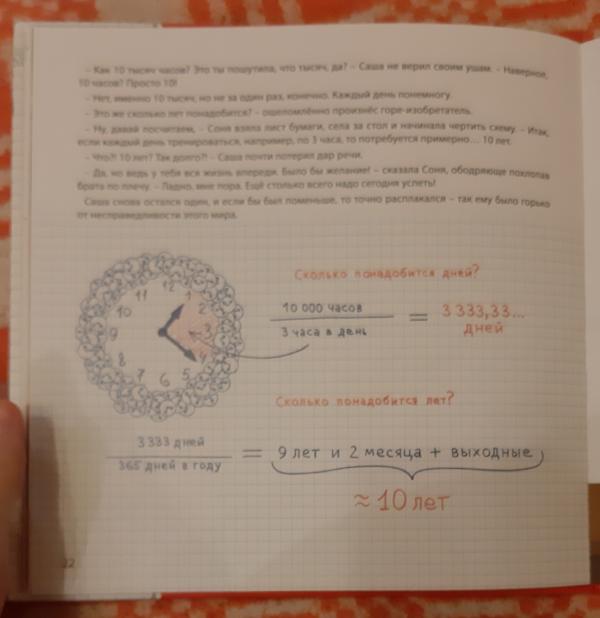 – Как 10 тысяч часов? Это ты пошутила, что тысяч, да? – Саша не верил своим ушам. – Наверное,
10 часов? Просто 10!
– Нет, именно 10 тысяч, но не за один раз, конечно. Каждый день понемногу.
– Это же сколько лет понадобится? – ошеломлённо произнёс горе-изобретатель.
– Ну, давай посчитаем, – Соня взяла лист бумаги, села за стол и начинала чертить схему. – Итак,
если каждый день тренироваться, например, по 3 часа, то потребуется примерно… 10 лет.
– Что?! 10 лет? Так долго?! – Саша почти потерял дар речи.
– Да, но ведь у тебя вся жизнь впереди. Было бы желание! – сказала Соня, ободряюще похлопав
брата по плечу. – Ладно, мне пора. Ещё столько всего надо сегодня успеть!
Саша снова остался один, и если бы был поменьше, то точно расплакался – так ему было горько
от несправедливости этого мира.
Сколько понадобится дней?
12
1
2
3
4
5
6
7
8
9
10
11
10 000 часов
3 часа в день
=
3 333,33...
дней
Сколько понадобится лет?
3 333 дней
365 дней в году
=
9 лет и 2 месяца + выходные
≈ 10 лет
22